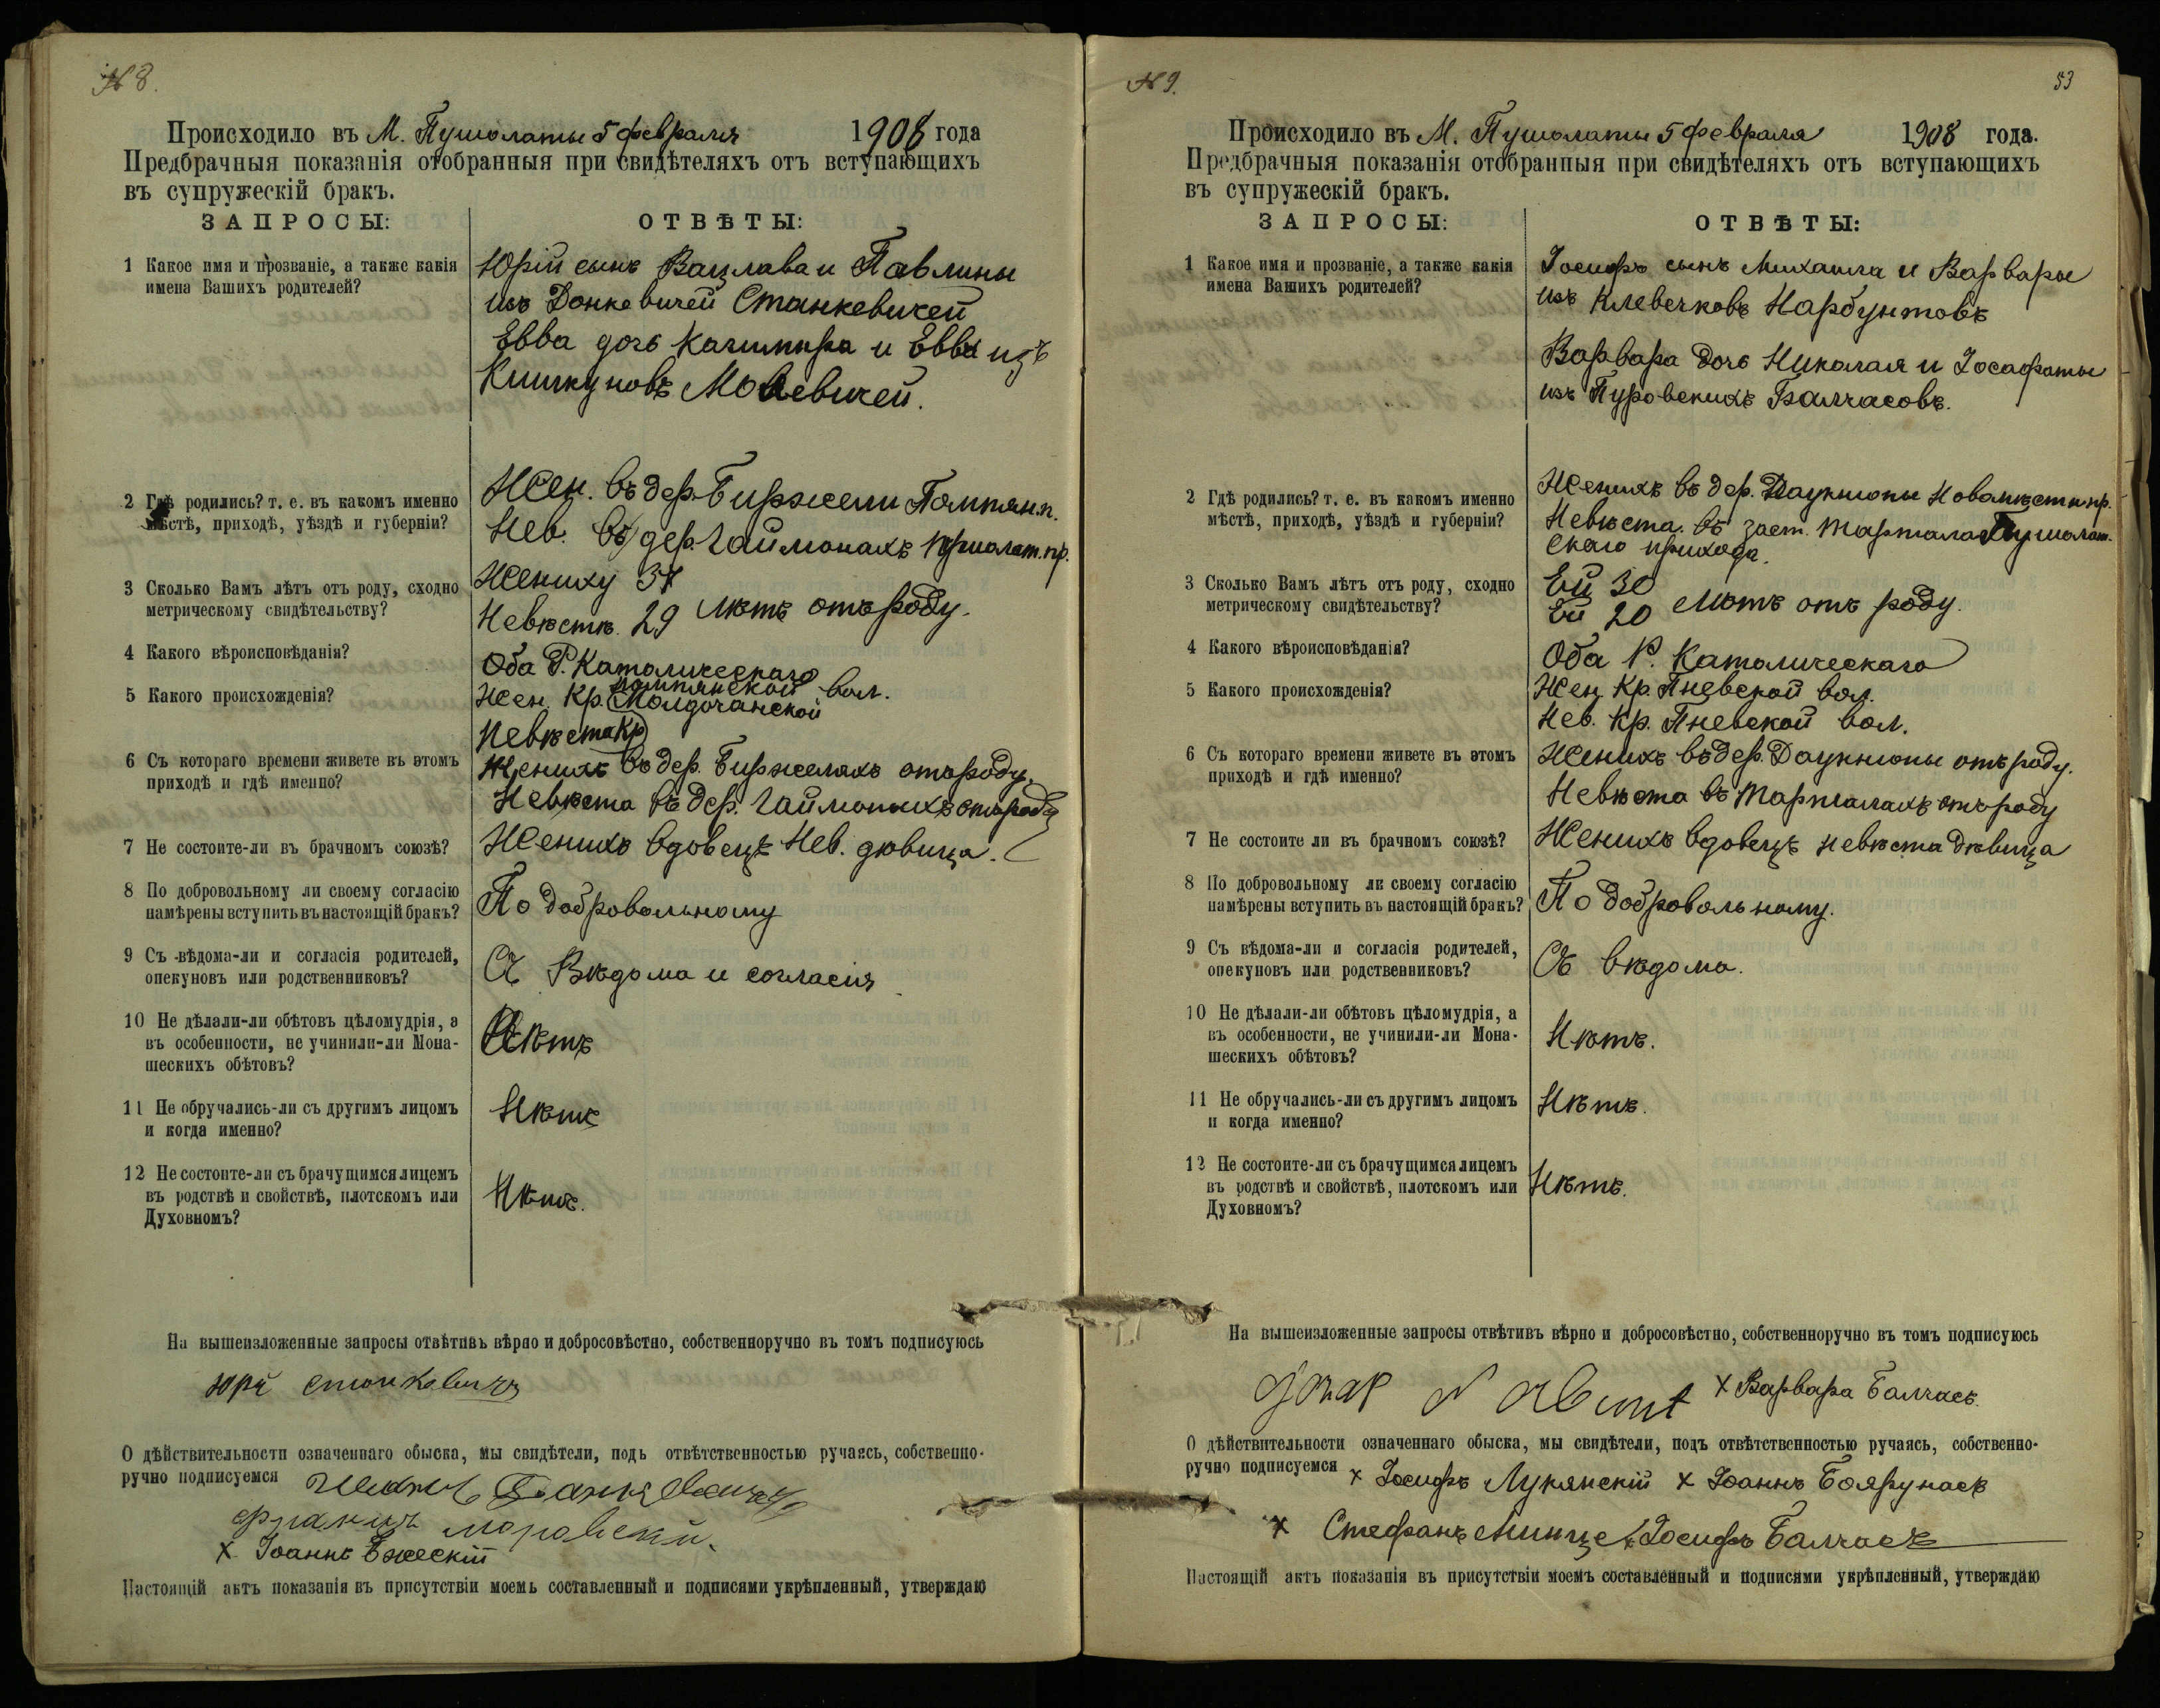 № 8.
Происходило въ М. Пушолаты 5 февраля 1908 года
Предбрачныя показанія отобранныя при свидѣтеляхъ отъ вступающихъ
въ супружескій бракъ.
ЗАПРОСЫ: ОТВѢТЫ:
1 Какое имя и прозваніе, а также какія
имена Вашихъ родителей?
Юрій сынъ Вацлава и Павлины
изъ Донкевичей Станкевичей
Евва дочь Казимира и Еввы изъ
Кишкуновъ
2 Гдѣ родились? т. е. въ какомъ именно
мѣстѣ, приходѣ, уѣздѣ и губерніи?
Жен. въ дер. Биржели Помпян. п.
Нев. въ дер. Гаймонахъ Пушолат. пр.
3 Сколько Вамъ лѣтъ отъ роду, сходно
метрическому свидѣтельству?
Жениху
Невѣстѣ 29 лѣтъ отъ роду.
4 Какого вѣроисповѣданія?
Оба Р. Католическаго
5 Какого происхожденія?
помпянской
Жен. Кр. вол.
Невѣста Кр
6 Съ котораго времени живете въ этомъ
приходѣ и гдѣ именно?
Женихъ въ дер. Биржеляхъ отъ роду,
Невѣста въ дер. Гаймонахъ отъ роду
7 Не состоите-ли въ брачномъ союзѣ?
Женихъ вдовецъ Нев. дѣвица.
8 По добровольному ли своему согласію
намѣрены вступить въ настоящій бракъ?
По добровольному
9 Съ вѣдома-ли и согласія родителей,
опекуновъ или родственниковъ?
Съ Вѣдома и согласія
10 Не дѣлали-ли обѣтовъ цѣломудрія, а
въ особенности, не учинили-ли Мона-
шескихъ обѣтовъ?
Нѣтъ
11 Не обручались-ли съ другимъ лицомъ
и когда именно?
Нѣтъ
12 Не состоите-ли съ брачущимся лицемъ
въ родствѣ и свойствѣ, плотскомъ или
Духовномъ?
Нѣтъ.
На вышеизложенные запросы отвѣтивъ вѣрно и добросовѣстно, собственноручно въ томъ подписуюсь
Юрй
О дѣйствительности означеннаго обыска, мы свидѣтели, подъ отвѣтственностью ручаясь, собственно-
ручно подписуемся
x Іоаннъ
Настоящій актъ показанія въ присутствіи моемъ составленный и подписями укрѣпленный, утверждаю
№ 9. 53
Происходило въ М. Пушолаты 5 февраля 1908 года.
Предбрачныя показанія отобранныя при свидѣтеляхъ отъ вступающихъ
въ супружескій бракъ.
ЗАПРОСЫ: ОТВѢТЫ:
1 Какое имя и прозваніе, а также какія
имена Вашихъ родителей?
Іосифъ сынъ Михаила и Варвары
изъ Клевечковъ Нарбунтовъ
Варвара дочь Николая и Іосафаты
изъ Пуровскихъ Балчасовъ.
2 Гдѣ родились? т. е. въ какомъ именно
мѣстѣ, приходѣ, уѣздѣ и губерніи?
Женихъ въ дер. Даукнюны пр.
Невѣста. въ заст. Пушолат.
скаго прихода.
3 Сколько Вамъ лѣтъ отъ роду, сходно
метрическому свидѣтельству?
30
Ей 20 лѣтъ отъ роду.
4 Какого вѣроисповѣданія?
Оба Р. Католическаго
5 Какого происхожденія?
Жен. Кр. Пневской вол.
Нев. Кр. Пневской вол.
6 Съ котораго времени живете въ этомъ
приходѣ и гдѣ именно?
Женихъ въ дер. Даукнюны отъ роду.
Невѣста въ отъ роду
7 Не состоите ли въ брачномъ союзѣ?
Женихъ вдовецъ невѣста дѣвица
8 По добровольному ли своему согласію
намѣрены вступить въ настоящій бракъ?
По добровольному.
9 Съ вѣдома-ли и согласія родителей,
опекуновъ или родственниковъ?
Съ вѣдома.
10 Не дѣлали-ли обѣтовъ цѣломудрія, а
въ особенности, не учинили-ли Мона-
шескихъ обѣтовъ?
Нѣтъ.
11 Не обручались-ли съ другимъ лицомъ
и когда именно?
Нѣтъ.
12 Не состоите-ли съ брачущимся лицемъ
въ родствѣ и свойствѣ, плотскомъ или
Духовномъ?
Нѣтъ.
На вышеизложенные запросы отвѣтивъ вѣрно и добросовѣстно, собственноручно въ томъ подписуюсь
x Варвара Балчасъ.
О дѣйствительности означеннаго обыска, мы свидѣтели, подъ отвѣтственностью ручаясь, собственно-
ручно подписуемся x Іосифъ Лукянскій x Іоаннъ Боярунасъ
x Стефанъ Минце x Іосифъ Балчасъ
Настоящій актъ показанія въ присутствіи моемъ составленный и подписями укрѣпленный, утверждаю